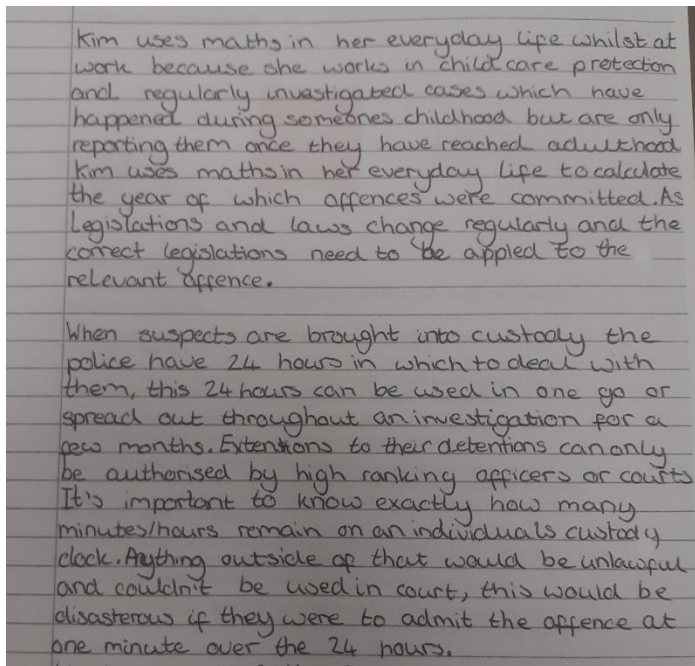 Kim uses maths in her everyday life whilst at
work because she works in child care protection
and regularly investigated cases which have
happened during someones childhood but are only
reporting them once they have reached adulthood
Kim uses maths in her everyday life to calculate
the year of which offences were committed. As
Legislations and laws change regularly and the
correct legislations need to be appled to the
relevant offence.

When suspects are brought into custody the
police have 24 hours in which to deal with
them, this 24 hours can be used in one go or
spread out throughout an investigation for a
few months. Extentions to their detentions can only
be authorised by high ranking officers or courts
It's important to know exactly how many
minutes/hours remain on an individuals custody
clock. Anything outside of that would be unlawful
and couldn't be used in court, this would be
disasterous if they were to admit the offence at
one minute over the 24 hours.